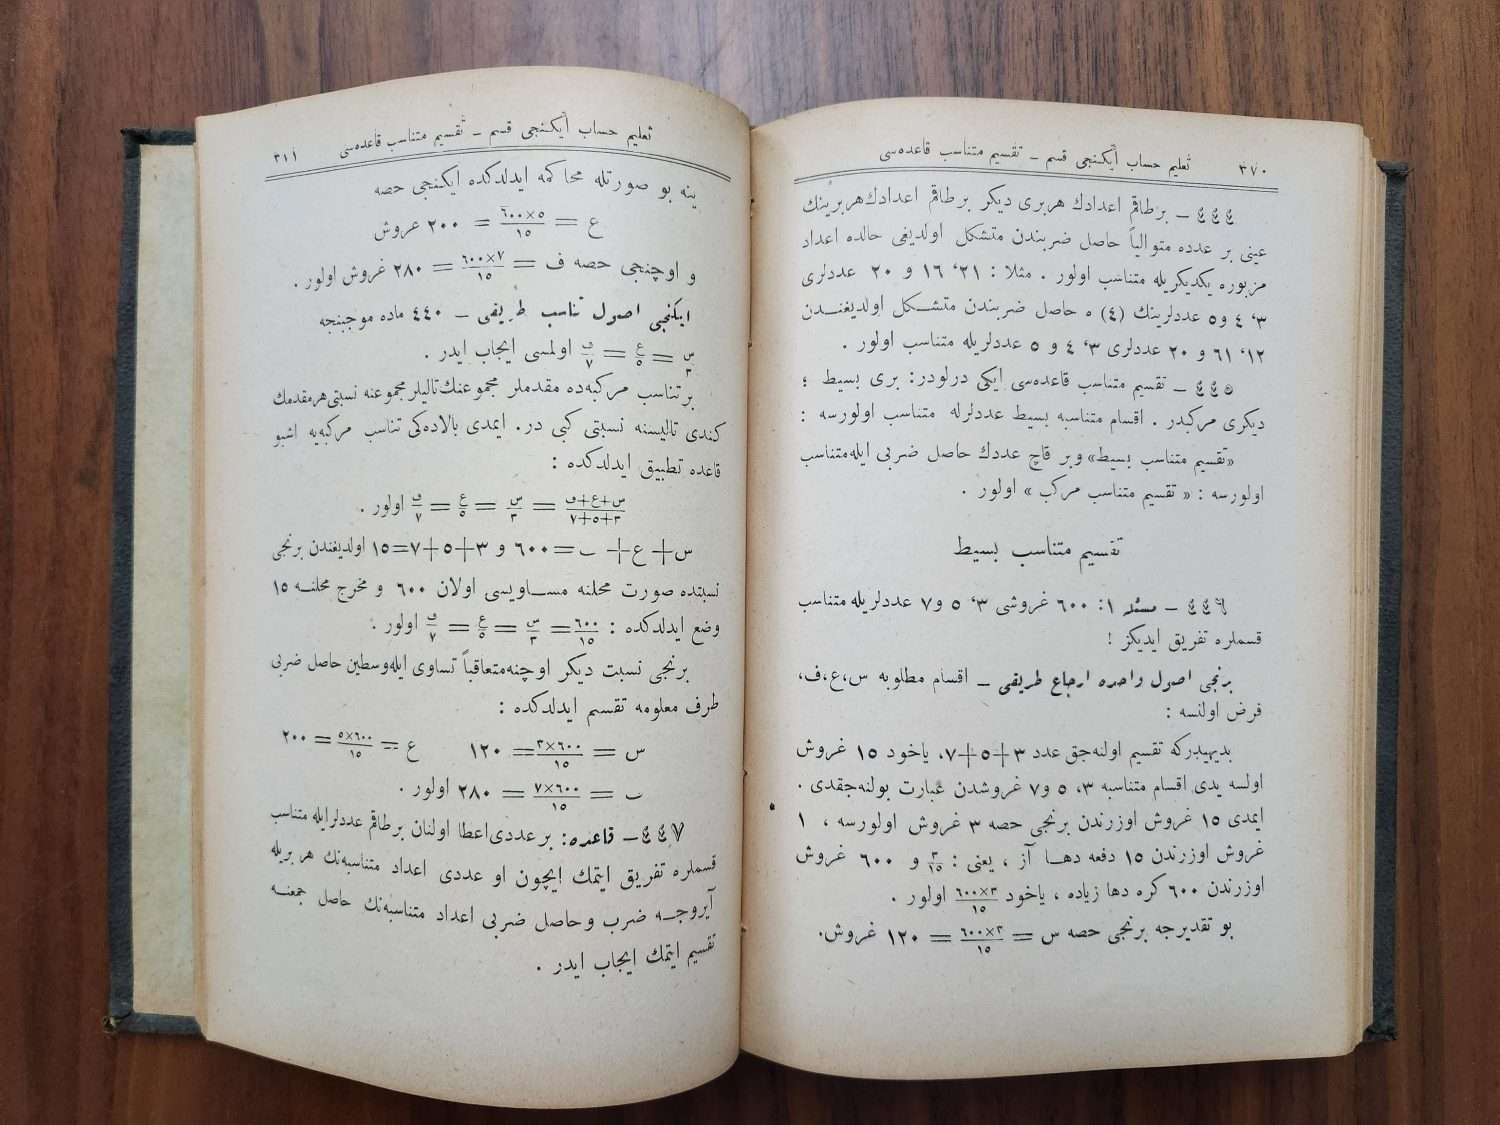 ٣٧٠ تعليم حساب ايكنجی قسم ـ تقسيم متناسب قاعده‌سی
٤٤٤ ـ برطاقم اعدادك هربری ديكر برطاقم اعدادك هربرينك
عينی بر عدده متوالياً حاصل ضربندن متشكل اولديغی حالده اعداد
مزبوره يكديكريله متناسب اولور . مثلا : ٢١، ١٦ و ٢٠ عددلری
٣، ٤ و٥ عددلرينك (٤) ه حاصل ضربندن متشكل اولديغندن
١٢، ٦١ و ٢٠ عددلری ٣، ٤ و ٥ عددلريله متناسب اولور .
٤٤٥ ـ تقسيم متناسب قاعده‌سی ايكی درلودر: بری بسيط ؛
ديكری مركبدر . اقسام متناسبه بسيط عددلرله متناسب اولورسه :
«تقسيم متناسب بسيط» وبر قاچ عددك حاصل ضربی ايله متناسب
اولورسه : « تقسيم متناسب مركب » اولور .
تقسيم متناسب بسيط
٤٤٦ ـ مسئله ١: ٦٠٠ غروشی ٣، ٥ و٧ عددلريله متناسب
قسملره تفريق ايديكز !
برنجی اصول واحده ارجاع طريقی ـ اقسام مطلوبه س،ع،ف،
فرض اولنسه :
بديهيدركه تقسيم اولنه‌جق عدد ٣+٥+٧، ياخود ١٥ غروش
اولسه يدی اقسام متناسبه ٣، ٥ و٧ غروشدن عبارت بولنه‌جقدی .
ايمدی ١٥ غروش اوزرندن برنجی حصه ٣ غروش اولورسه ، ١
غروش اوزرندن ١٥ دفعه دها آز ، يعنی : ٣/١٥ و ٦٠٠ غروش
اوزرندن ٦٠٠ كره دها زياده ، ياخود ٦٠٠×٣/١٥ اولور .
بو تقديرجه برنجی حصه س = ٦٠٠×٣/١٥ = ١٢٠ غروش.
تعليم حساب ايكنجی قسم ـ تقسيم متناسب قاعده‌سی ٣١١
ينه بو صورتله محاكمه ايدلدكده ايكنجی حصه
ع = ٦٠٠×٥/١٥ = ٢٠٠ عروش
و اوچنجی حصه ف = ٦٠٠×٧/١٥ = ٢٨٠ غروش اولور .
ايكنجی اصول تناسب طريقی ـ ٤٤٠ ماده موجبنجه
س/٣ = ع/٥ = ف/٧ اولمسی ايجاب ايدر .
بر تناسب مركبه‌ده مقدملر مجموعنك تاليلر مجموعنه نسبتی هرمقدمك
كندی تاليسنه نسبتی كبی در. ايمدی بالاده‌كی تناسب مركبه‌يه اشبو
قاعده تطبيق ايدلدكده :
س+ع+ف/٣+٥+٧ = س/٣ = ع/٥ = ف/٧ اولور .
س+ع+ف=٦٠٠ و ٣+٥+٧=١٥ اولديغندن برنجی
نسبتده صورت محلنه مساويسی اولان ٦٠٠ و مخرج محلنه ١٥
وضع ايدلدكده : ٦٠٠/١٥ = س/٣ = ع/٥ = ف/٧ اولور .
برنجی نسبت ديكر اوچنه متعاقباً تساوی ايله وسطين حاصل ضربی
طرف معلومه تقسم ايدلدكده :
س = ٦٠٠×٣/١٥ = ١٢٠ ع = ٦٠٠×٥/١٥ = ٢٠٠
ف = ٦٠٠×٧/١٥ = ٢٨٠ اولور .
٤٤٧ـ قاعده: بر عددی اعطا اولنان برطاقم عددلر ايله متناسب
قسملره تفريق ايتمك ايچون او عددی اعداد متناسبه‌نك هر بريله
آيروجه ضرب وحاصل ضربی اعداد متناسبه‌نك حاصل جمعنه
تقسيم ايتمك ايجاب ايدر .